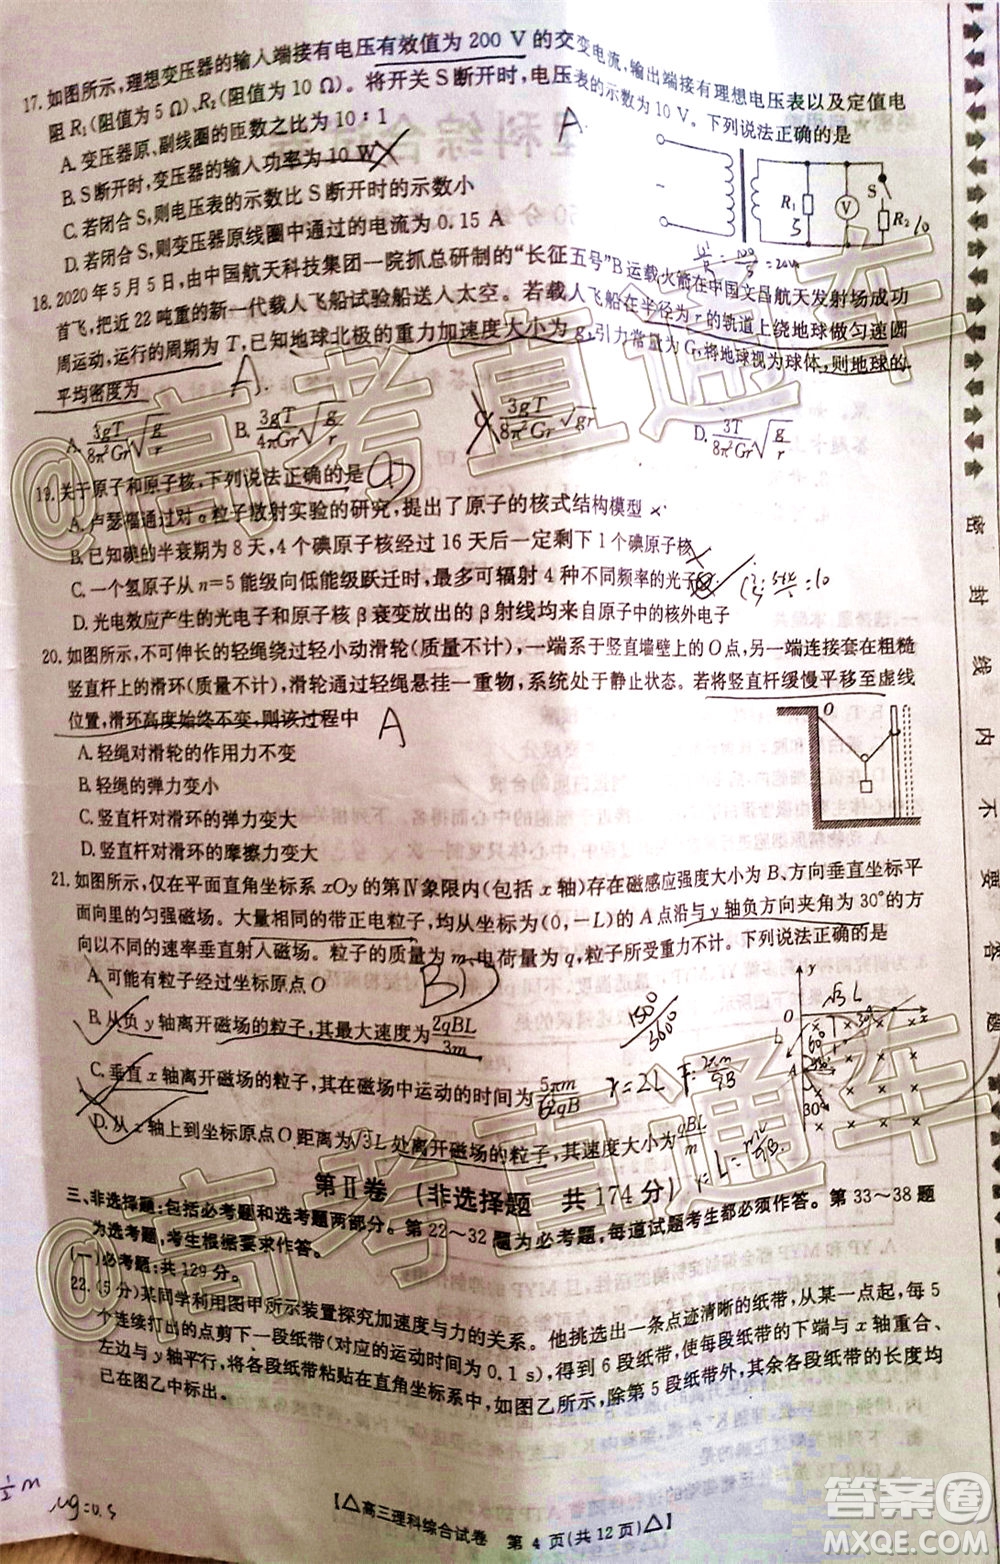 17. 如图所示,理想变压器的输入端接有电压有效值为 200 V 的交变电流,输出端接有理想电压表以及定值电
阻 R₁(阻值为 5 Ω)、R₂(阻值为 10 Ω)。将开关 S 断开时,电压表的示数为 10 V。下列说法正确的是
A
A. 变压器原、副线圈的匝数之比为 10 : 1
B. S 断开时,变压器的输入功率为 10 W
C. 若闭合 S,则电压表的示数比 S 断开时的示数小
D. 若闭合 S,则变压器原线圈中通过的电流为 0.15 A
R₁
5
V
S
R₂
10
18. 2020 年 5 月 5 日,由中国航天科技集团一院抓总研制的“长征五号”B 运载火箭在中国文昌航天发射场成功
首飞,把近 22 吨重的新一代载人飞船试验船送入太空。若载人飞船在半径为 r 的轨道上绕地球做匀速圆
周运动,运行的周期为 T,已知地球北极的重力加速度大小为 g,引力常量为 G,将地球视为球体,则地球的
平均密度为
A
A. 3gT/8π²Gr √(g/r)
B. 3gT/4πGr √(g/r)
C. 3gT/8π²Gr √gr
D. 3T/8π²Gr √(g/r)
19. 关于原子和原子核,下列说法正确的是
A. 卢瑟福通过对 α 粒子散射实验的研究,提出了原子的核式结构模型
B. 已知碘的半衰期为 8 天,4 个碘原子核经过 16 天后一定剩下 1 个碘原子核
C. 一个氢原子从 n=5 能级向低能级跃迁时,最多可辐射 4 种不同频率的光子
D. 光电效应产生的光电子和原子核 β 衰变放出的 β 射线均来自原子中的核外电子
20. 如图所示,不可伸长的轻绳绕过轻小动滑轮(质量不计),一端系于竖直墙壁上的 O 点,另一端连接在粗糙
竖直杆上的滑环(质量不计),滑轮通过轻绳悬挂一重物,系统处于静止状态。若将竖直杆缓慢平移至虚线
位置,滑环高度始终不变,则该过程中
A
A. 轻绳对滑轮的作用力不变
B. 轻绳的弹力变小
C. 竖直杆对滑环的弹力变大
D. 竖直杆对滑环的摩擦力变大
O
21. 如图所示,仅在平面直角坐标系 xOy 的第Ⅳ象限内(包括 x 轴)存在磁感应强度大小为 B、方向垂直坐标平
面向里的匀强磁场。大量相同的带正电粒子,均从坐标为(0,−L)的 A 点沿与 y 轴负方向夹角为 30°的方
向以不同的速率垂直射入磁场。粒子的质量为 m、电荷量为 q,粒子所受重力不计。下列说法正确的是
BD
A. 可能有粒子经过坐标原点 O
B. 从负 y 轴离开磁场的粒子,其最大速度为 2qBL/3m
C. 垂直 x 轴离开磁场的粒子,其在磁场中运动的时间为 5πm/6qB
D. 从 x 轴上到坐标原点 O 距离为 √3L 处离开磁场的粒子,其速度大小为 qBL/m
150°/360°
r=2L
y
O
x
A
30°
√3L
第Ⅱ卷 (非选择题 共 174 分)
三、非选择题:包括必考题和选考题两部分。第 22~32 题为必考题,每道试题考生都必须作答。第 33~38 题
为选考题,考生根据要求作答。
(一)必考题:共 129 分。
22. (5 分)某同学利用图甲所示装置探究加速度与力的关系。他挑选出一条点迹清晰的纸带,从某一点起,每 5
个连续打出的点剪下一段纸带(对应的运动时间为 0.1 s),得到 6 段纸带,然后将各段纸带的下端与 x 轴重合、
左边与 y 轴平行,将各段纸带粘贴在直角坐标系中,如图乙所示,除第 5 段纸带外,其余各段纸带的长度均
已在图乙中标出。
½m
μg=0.5
【△高三理科综合试卷 第 4 页(共 12 页)△】
密 封 线 内 不 要 答 题
@高考直通车
@高考直通车
答案圈
MXQE.COM